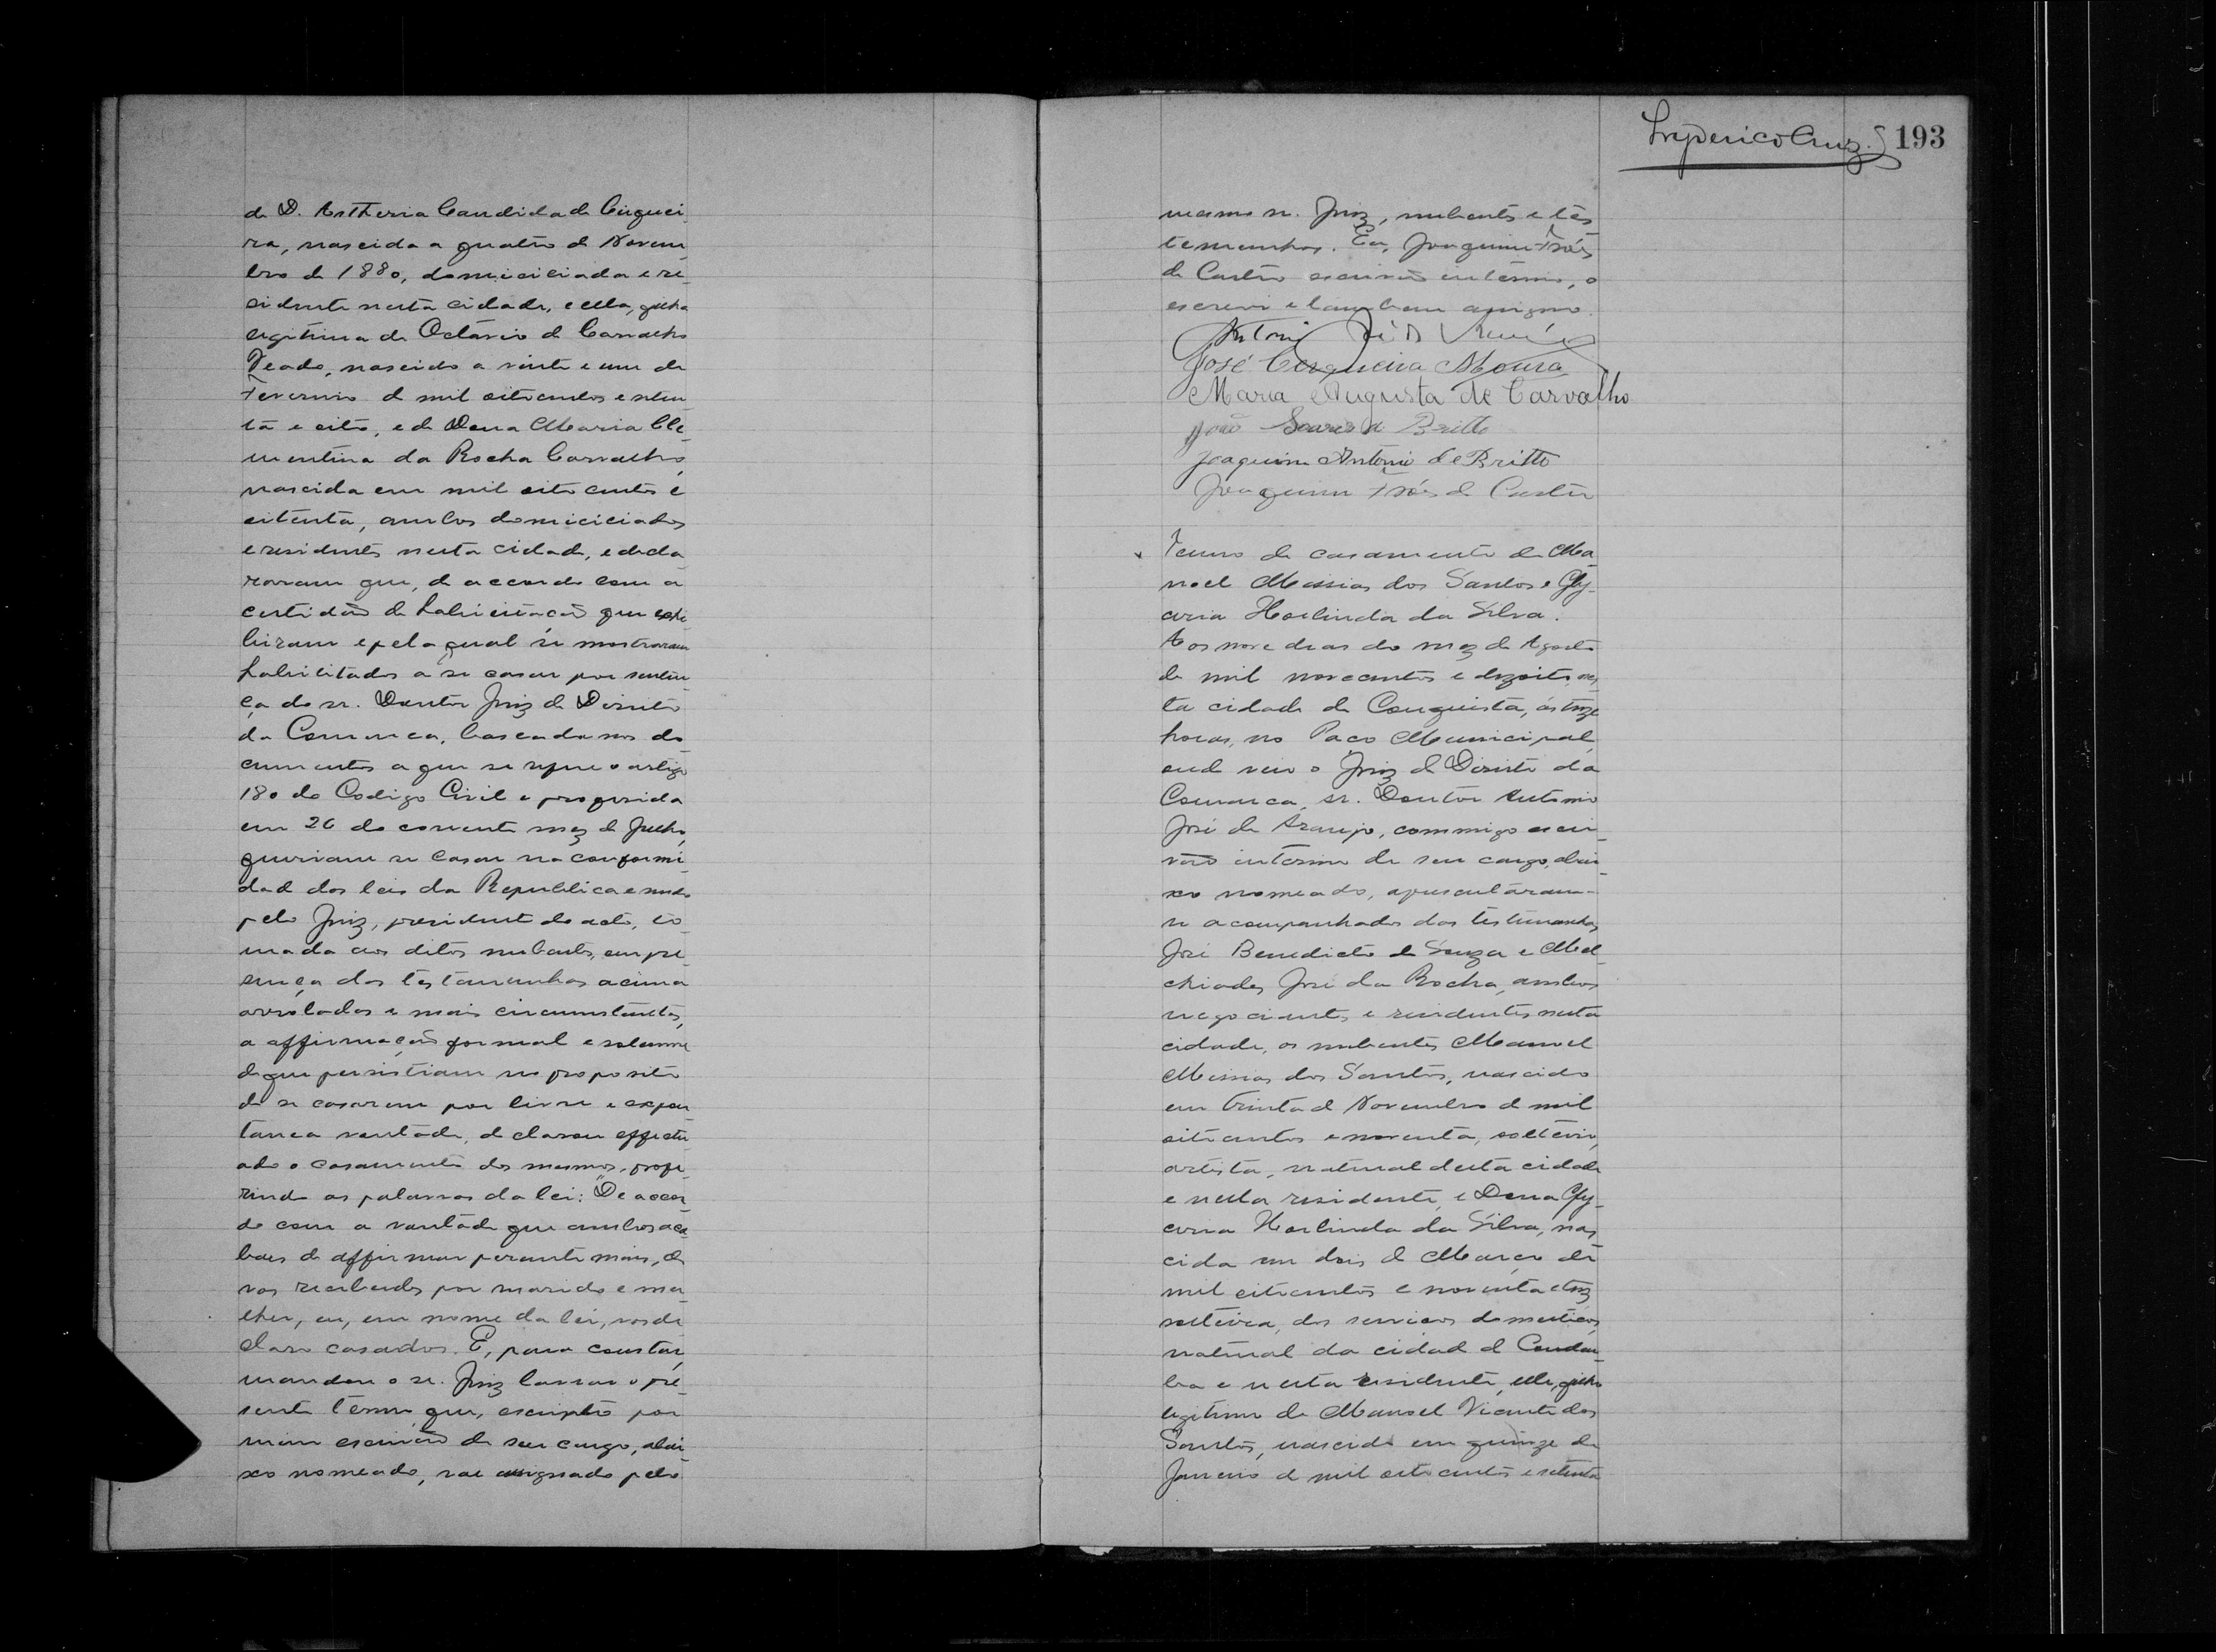 de D. Antheria Candida de Cirquei
ra, nascida a quatro de Novem
bro de 1880, domiciliada e re
sidente nesta cidade, e ella, filha
legitima de Octavio de Carvalho
Veado, nascido a vinte e um de
Fevereiro de mil oitocentos e seten
ta e oito, e de Dona Maria Cle
mentina da Rocha Carvalho,
nascida em mil oitocentos e
oitenta, ambos domiciliados
e residentes nesta cidade, e decla
raram que, de accordo com a
certidão de habilitação que exhi
biram e pela qual se mostraram
habilitados a se casar por senten
ça do sr. Doutor Juiz de Direito
da Comarca, baseada nos do
cumentos a que se refere o artigo
180 do Codigo Civil e proferida
em 26 do corrente mez de Julho,
queriam se casar na conformi
dade das leis da Republica e sendo
pelo Juiz, presidente do acto, to
mada aos ditos nubentes, em pre
sença das testemunhas acima
arroladas e mais circumstantes,
a affirmação formal e solemne
de que persistiam no proposito
de se casarem por livre e expon
tanea vontade, declarou effectu
ado o casamento dos mesmos, profe
rindo as palavras da lei: "De accor
do com a vontade que ambos aca
baes de affirmar perante mim, de
vos receberdes por marido e mu
lher, eu, em nome da lei, vos de
claro casados. E, para constar,
mandou o sr. Juiz lavrar o pre
sente termo que, escripto por
mim escrivão de seu cargo, abai
xo nomeado, vae assignado pelo
Frederico Cruz. 193
mesmo sr. Juiz, nubentes e tes
temunhas. Eu, Joaquim Fróes
de Castro escrivão interino, o
escrevi e tambem assigno.
Antonio José de Araujo
José Cerqueira Moura
Maria Augusta de Carvalho
João Soares de Britto
Joaquim Antonio de Britto
Joaquim Fróes de Castro
Termo de casamento de Ma
noel Messias dos Santos e Gly
ceria Herlinda da Silva.
Aos nove dias do mez de Agosto
de mil novecentos e dezoito, nes
ta cidade de Conquista, ás treze
horas, no Paço Municipal,
onde veio o Juiz de Direito da
Comarca, sr. Doutor Antonio
José de Araujo, commigo escri
vão interino de seu cargo, abai
xo nomeado, apresentaram-
se acompanhados das testemunhas
José Benedicto de Souza e Mel
chiades José da Rocha, ambos
negociantes e residentes nesta
cidade, os nubentes Manoel
Messias dos Santos, nascido
em trinta de Novembro de mil
oitocentos e noventa, solteiro,
artista, natural desta cidade
e nesta residente, e Dona Gly
ceria Herlinda da Silva, nas
cida em dois de Março de
mil oitocentos e noventa e trez
solteira, dos serviços domesticos,
natural da cidade de Condeu
ba e nesta residente, elle, filho
legitimo de Manoel Vicente dos
Santos, nascido em quinze de
Janeiro de mil oitocentos e setenta